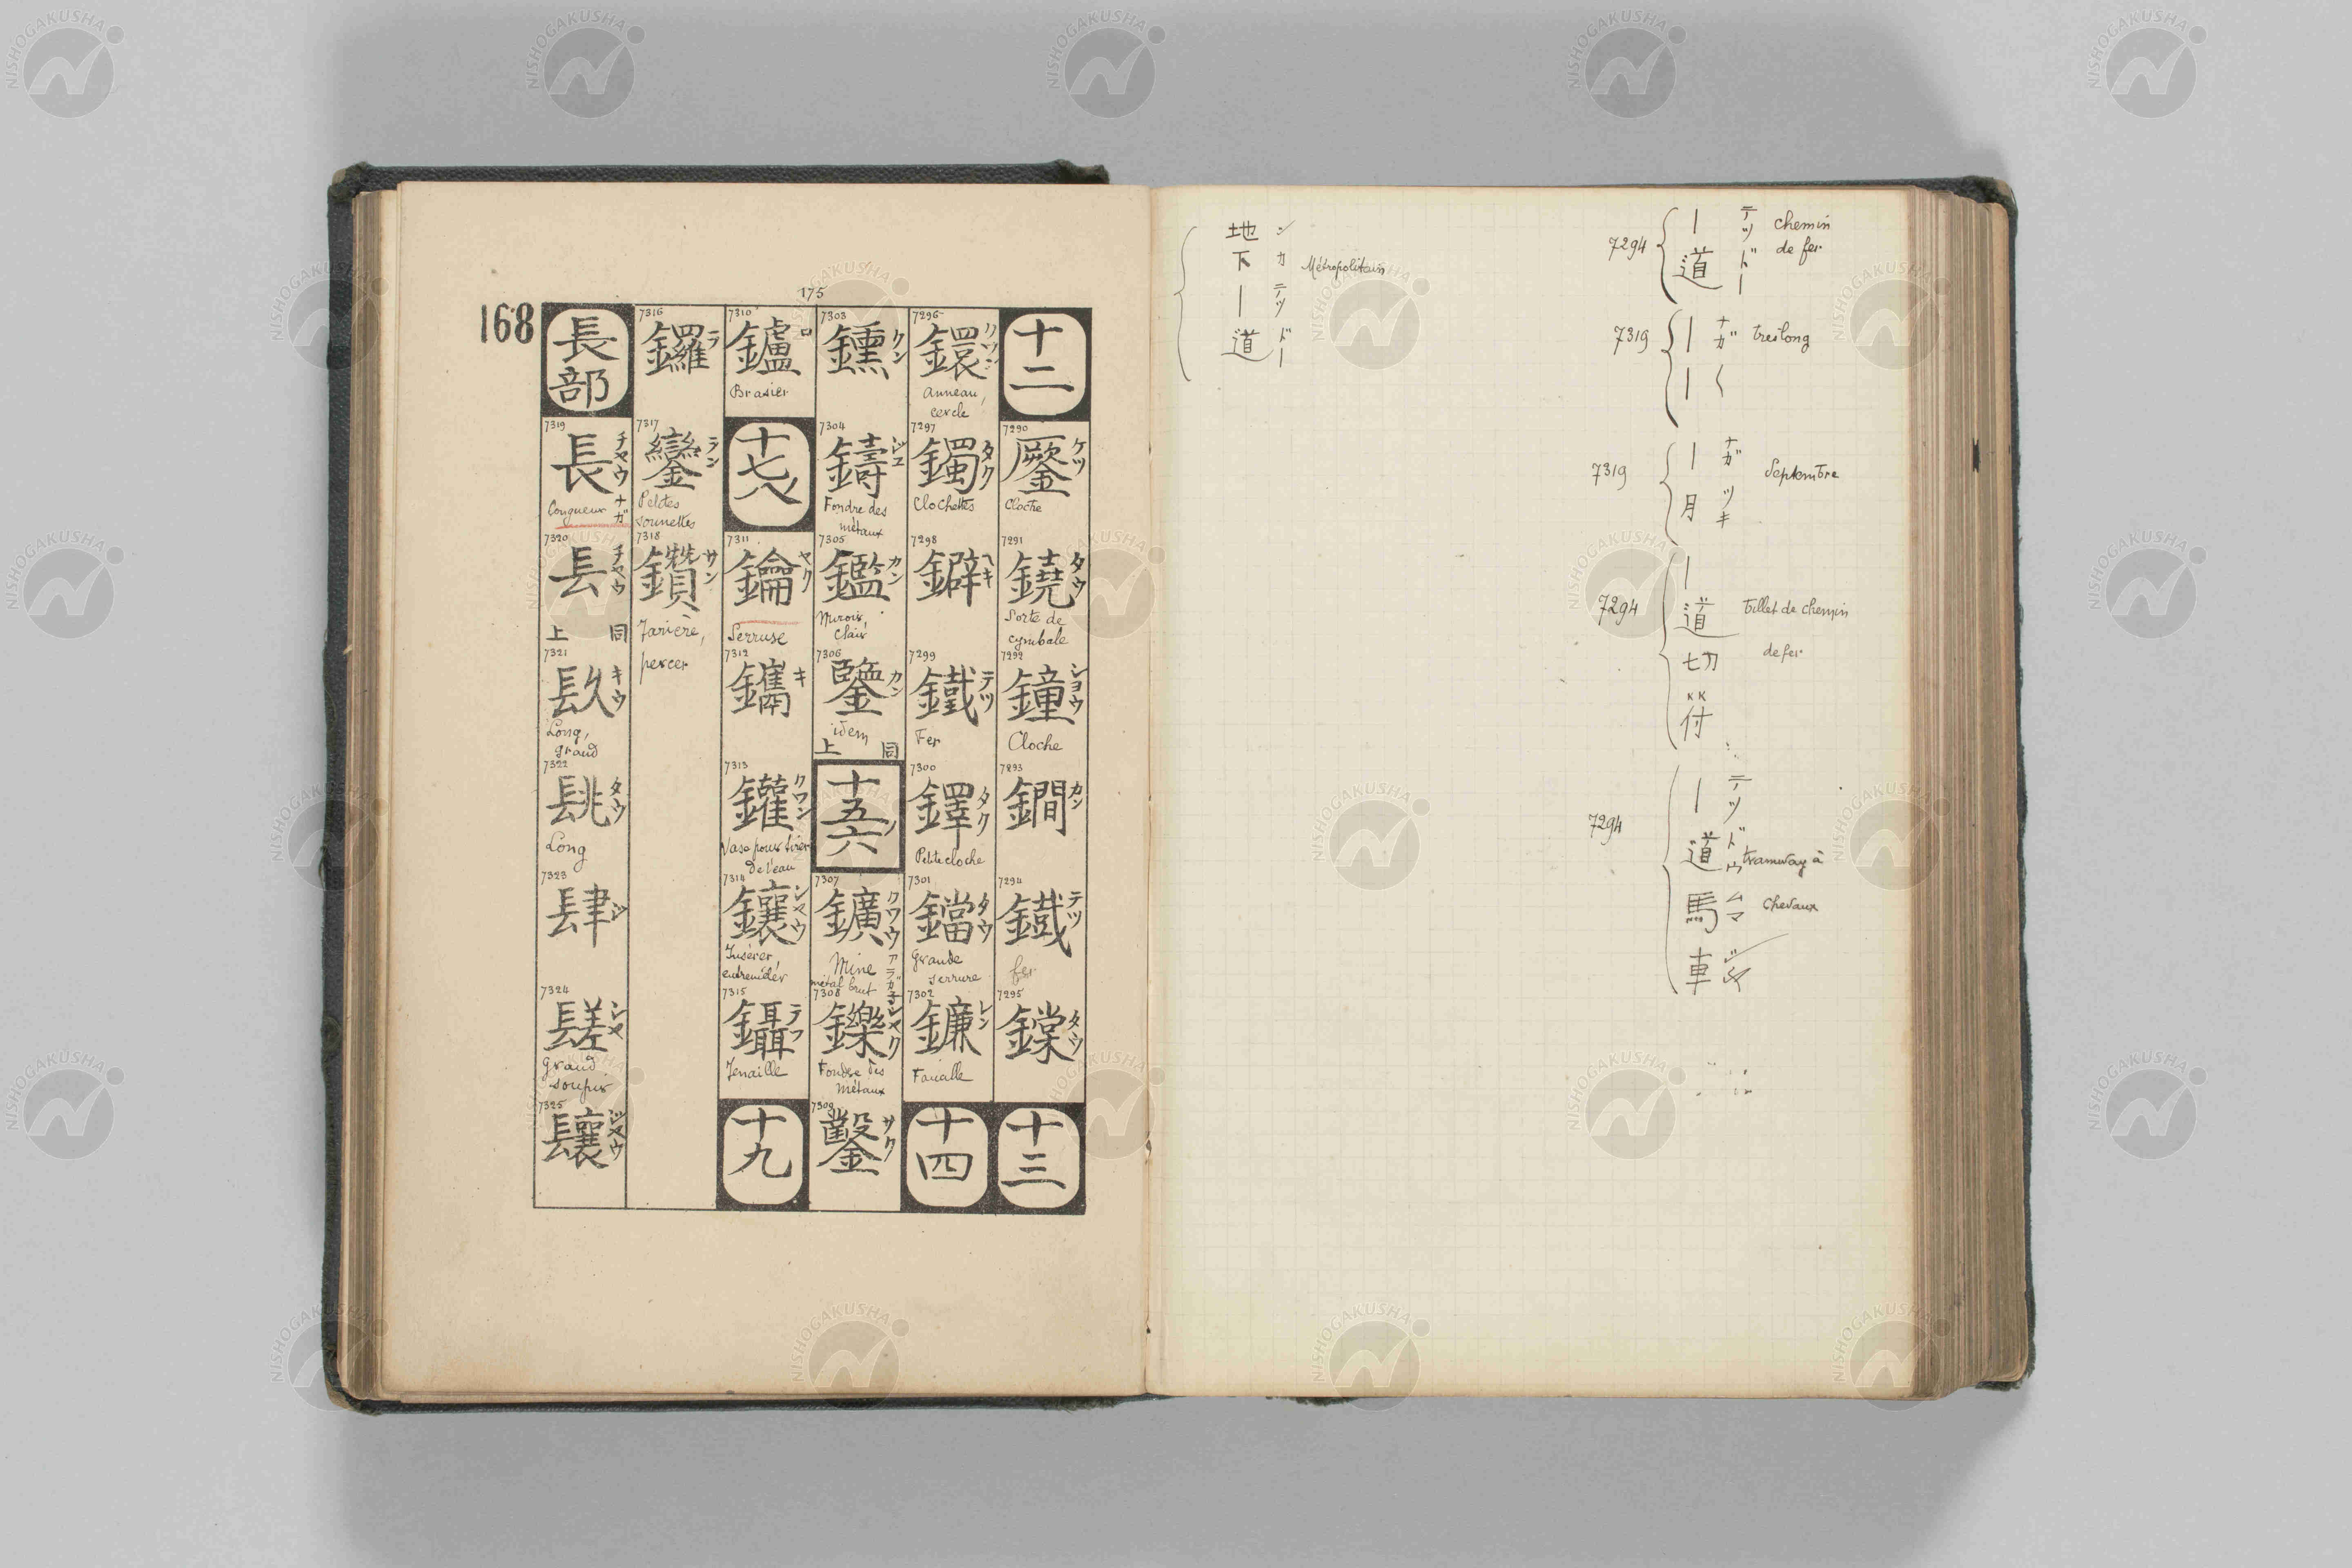 175
168
十二
7290
厥金 ケツ
Cloche
7291
鐃 タウ
Sorte de
cymbale
7292
鐘 ショウ
Cloche
7293
鐧 カン
7294
鐡 テツ
fer
7295
鏜 タウ
十三
7296
鐶 クワン
anneau,
cercle
7297
鐲 タク
Clochettes
7298
鐴 ヘキ
7299
鐵 テツ
Fer
7300
鐸 タク
Petite cloche
7301
鐺 タウ
Grande
serrure
7302
鐮 レン
Faucille
十四
7303
鑂 クン
7304
鑄 ジユ
Fondre des
métaux
7305
鑑 カン
Miroir,
clair
7306
鑒 カン
idem
同上
十五六
7307
鑛 クワウ
Mine
métal brut
アラガネ
7308
鑠 シヤク
Fondre des
métaux
7309
鑿 サク
7310
鑪 ロ
Brasier
十七八
7311
鑰 ヤク
Serruse
7312
鑴 キ
7313
鑵 クワン
Vase pour tirer
de l'eau
7314
鑲 シヤウ
Insérer,
7315
鑷 テフ
Tenaille
十九
7316
鑼 ラ
7317
鑾 ラン
Petites
sonnettes
7318
鑽 サン
Tarière,
percer
長部
7319
長 チヤウ
ナガ
Longueur
7320
镸 チヤウ
同上
7321
镹 キウ
Long,
grand
7322
Long
7323
肆 シ
7324
シヤ
Grand
soupir
7325
ジヤウ
7294
｜道 テツドー chemin
de fer
7319
｜｜ ナガ〱 tres long
7319
｜月 ナガツキ Septembre
7294
｜道切付 billet de chemin
de fer
7294
｜道馬車 テツドウ ムマ tramway à
chevaux
地下｜道 シカテツドー Métropolitain